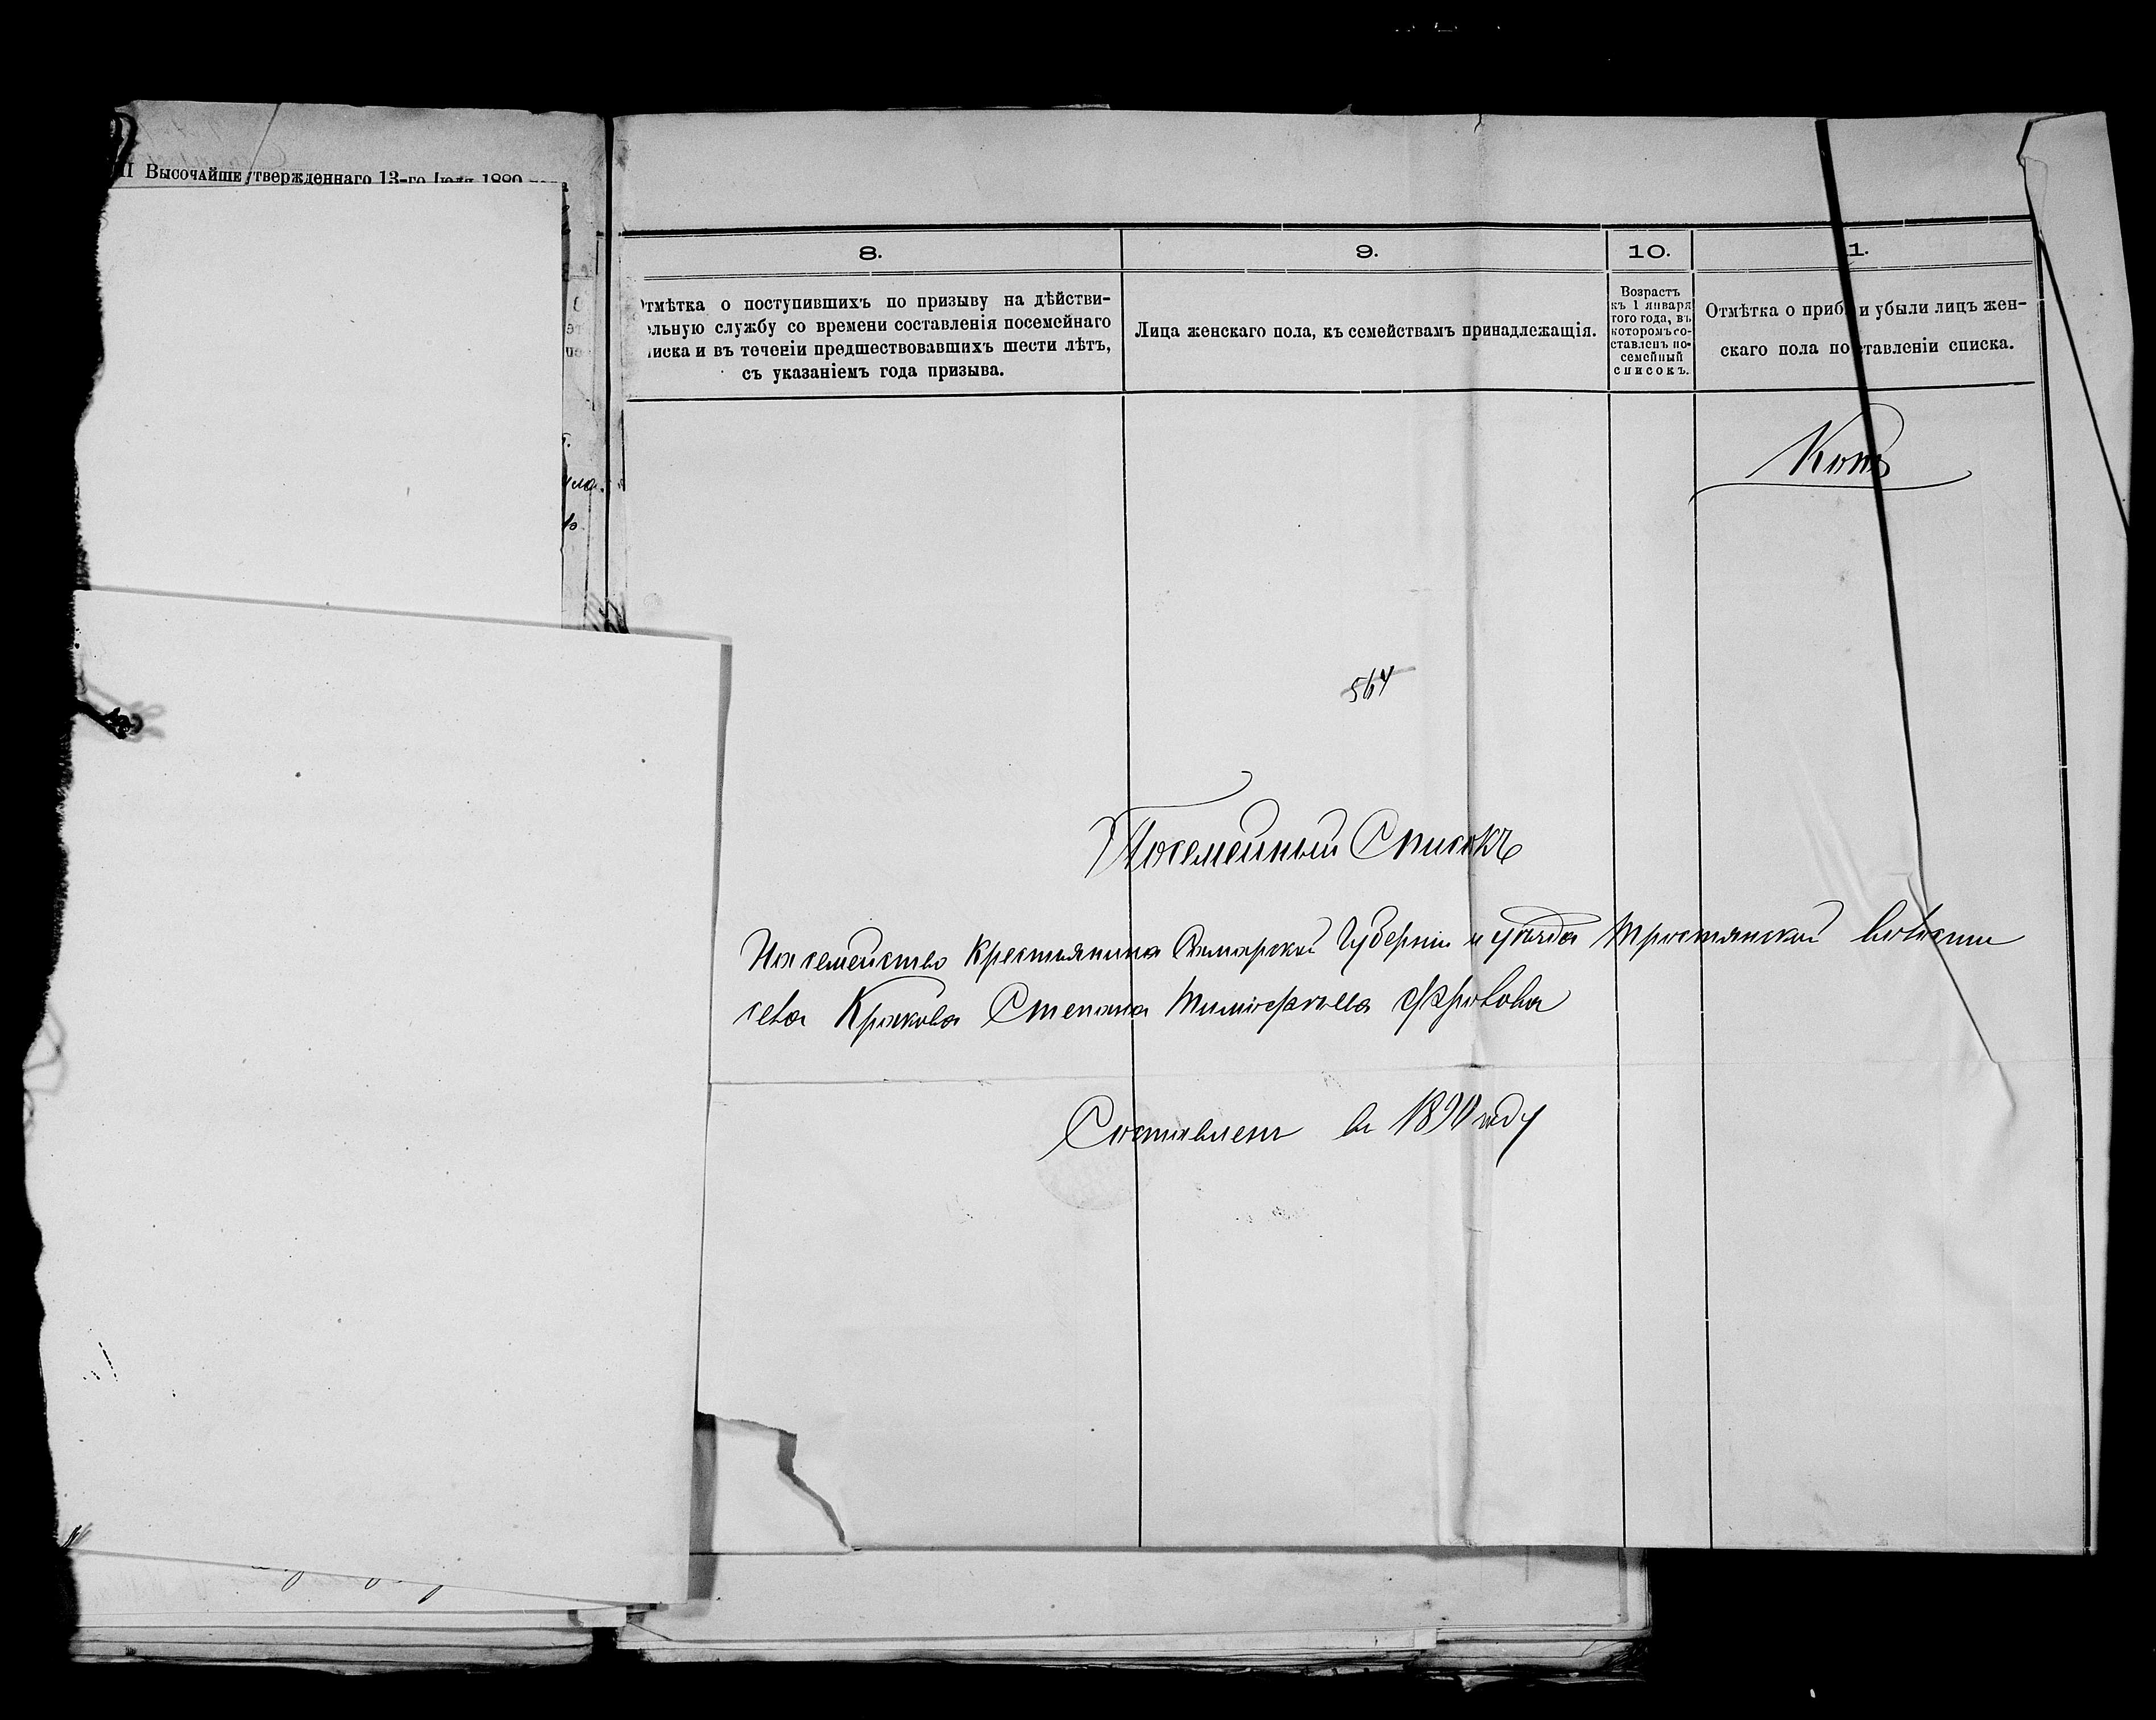 Высочайше утвержденнаго 13-го Іюля 1880 года
8.
9.
10.
11.
Отмѣтка о поступившихъ по призыву на дѣйстви-
ельную службу со времени составленія посемейнаго
писка и въ теченіи предшествовавшихъ шести лѣтъ,
съ указаніемъ года призыва.
Лица женскаго пола, къ семействамъ принадлежащія.
Возрастъ
къ 1 января
того года, въ
которомъ со-
ставленъ по-
семейный
списокъ.
Отмѣтка о приб и убыли лицъ жен-
скаго пола по ставленіи списка.
Копія
564
Посемейный Списокъ
На семейство Крестьянина Самарской Губерніи и уѣзда Тростянской волости
села Кракова Степана Тимофѣева Фролова
Составленъ въ 1890 году